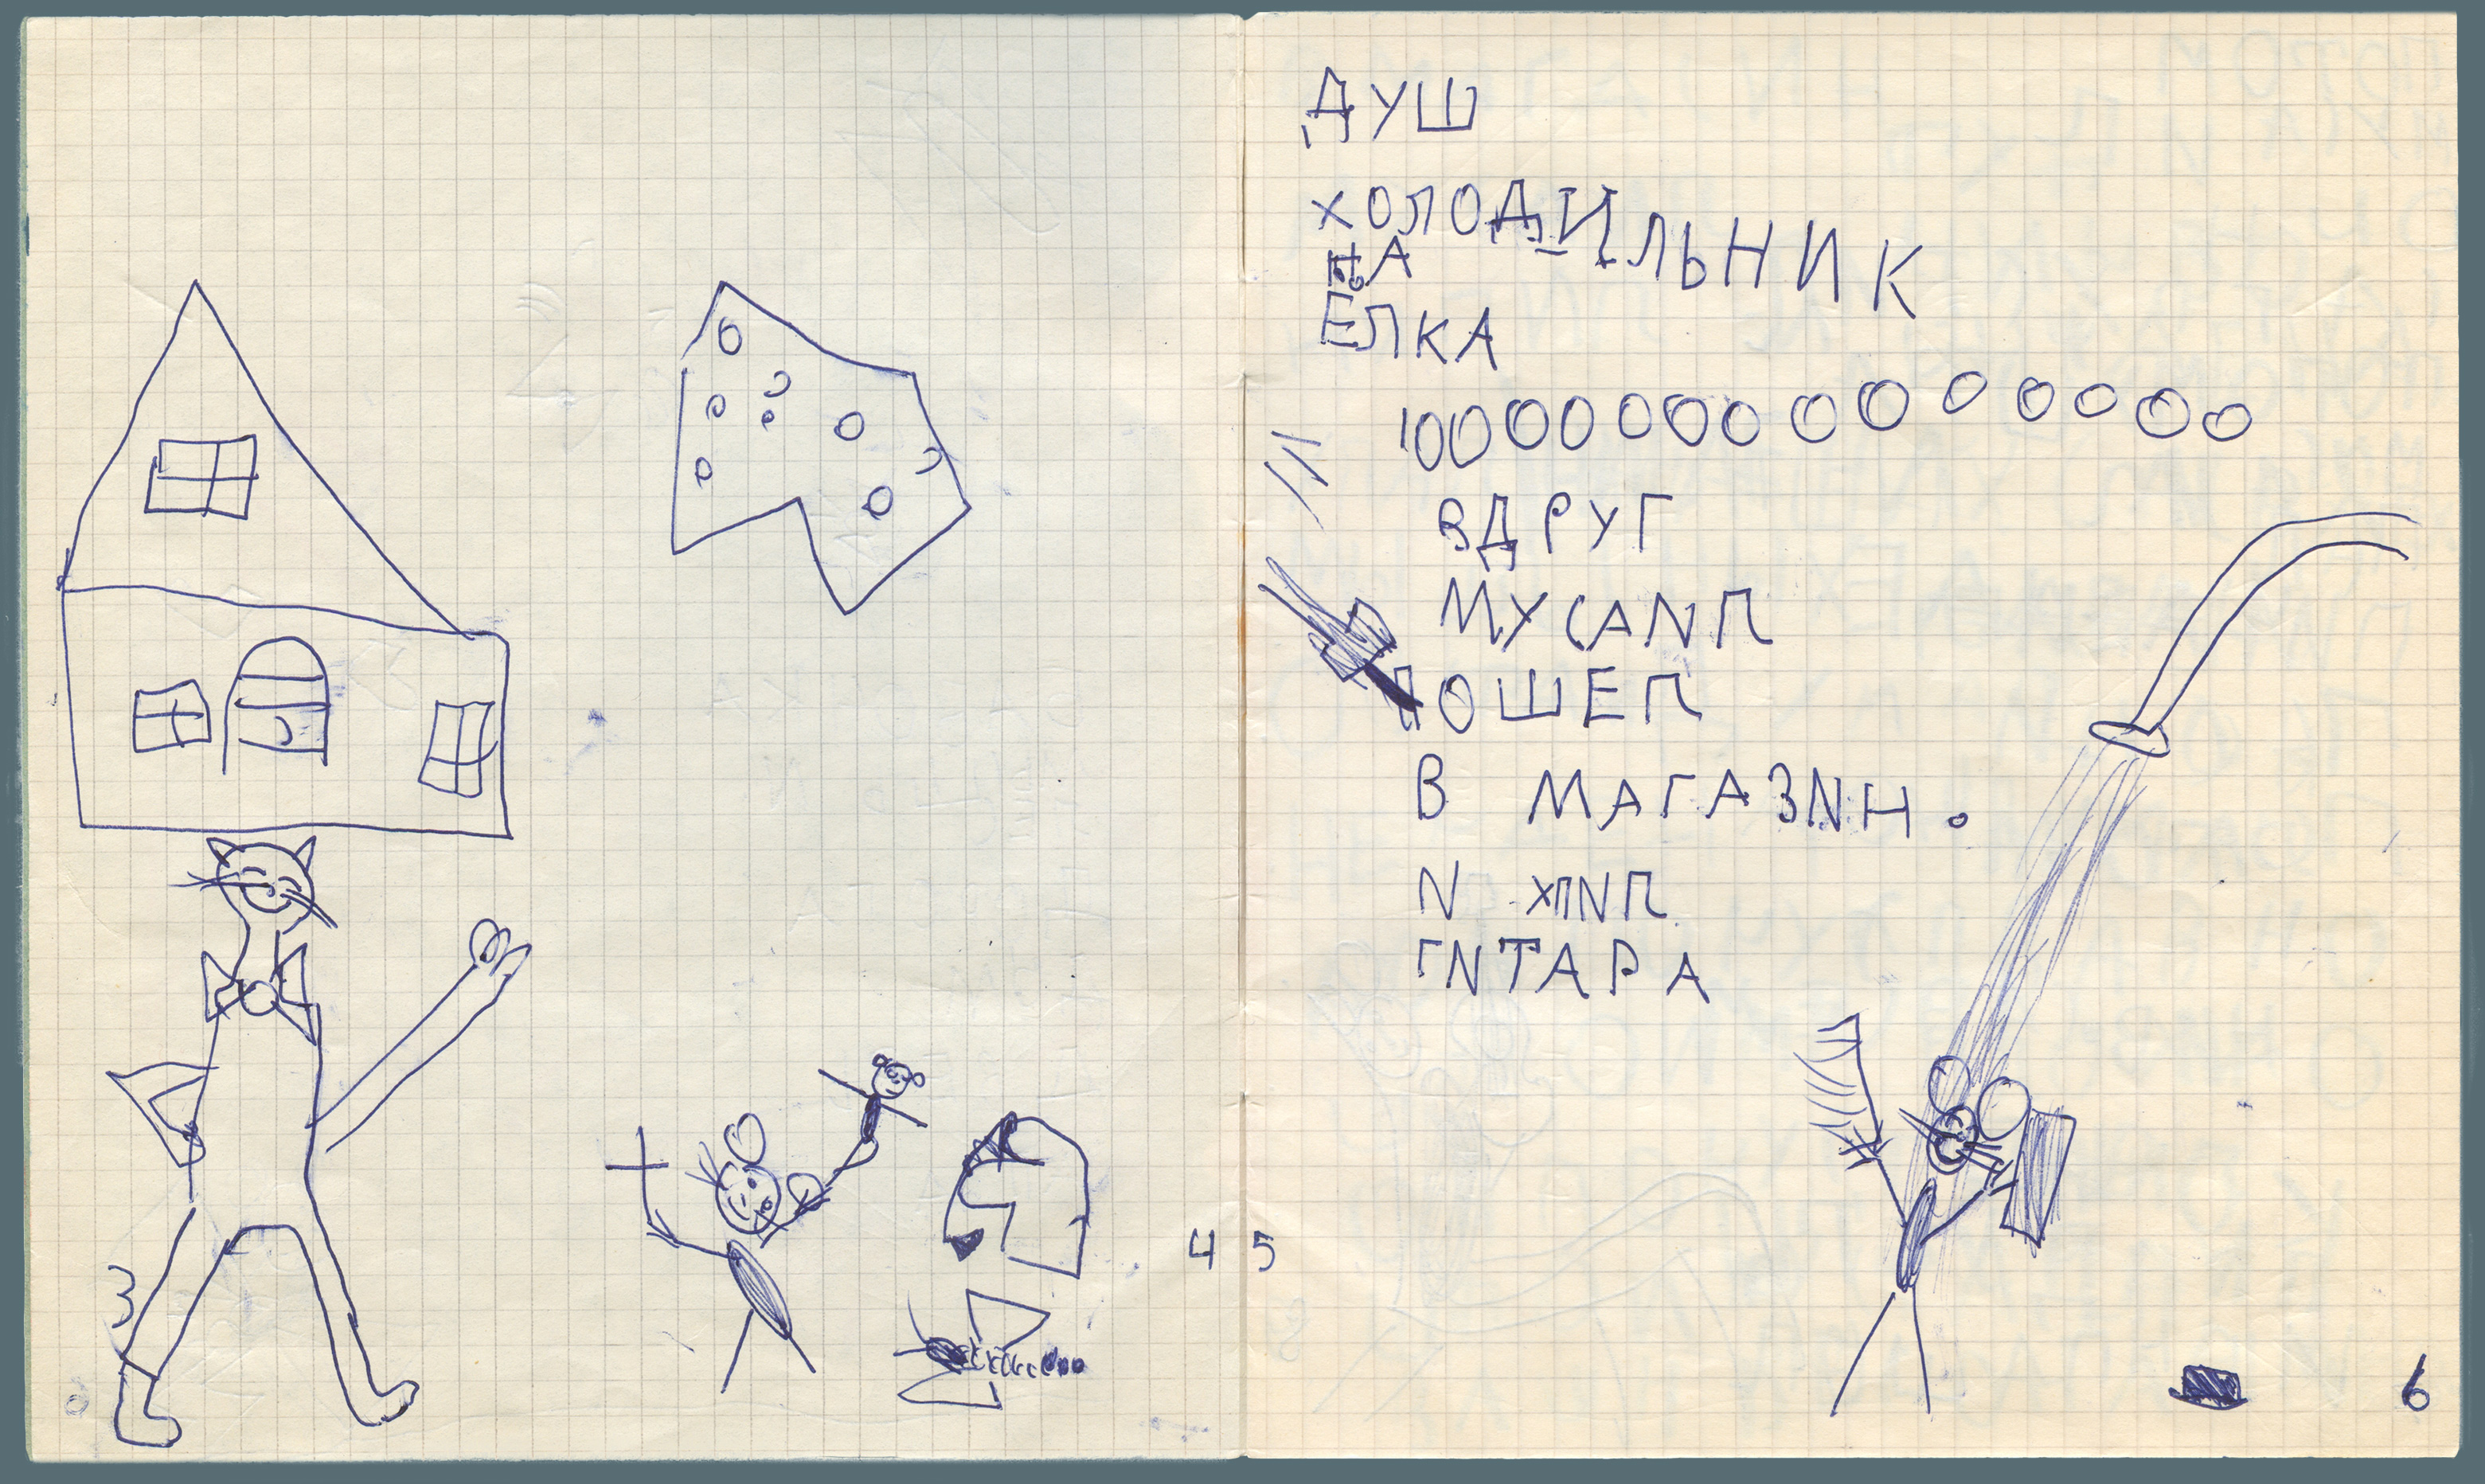 ДУШ
ХОЛОДИЛЬНИК
НА
ЕЛКА
100000000000000
ВДРУГ
МУСАNП
ПОШЕП
В МАГАЗNН.
N ХПNП
ГNТАРА
4 5
6